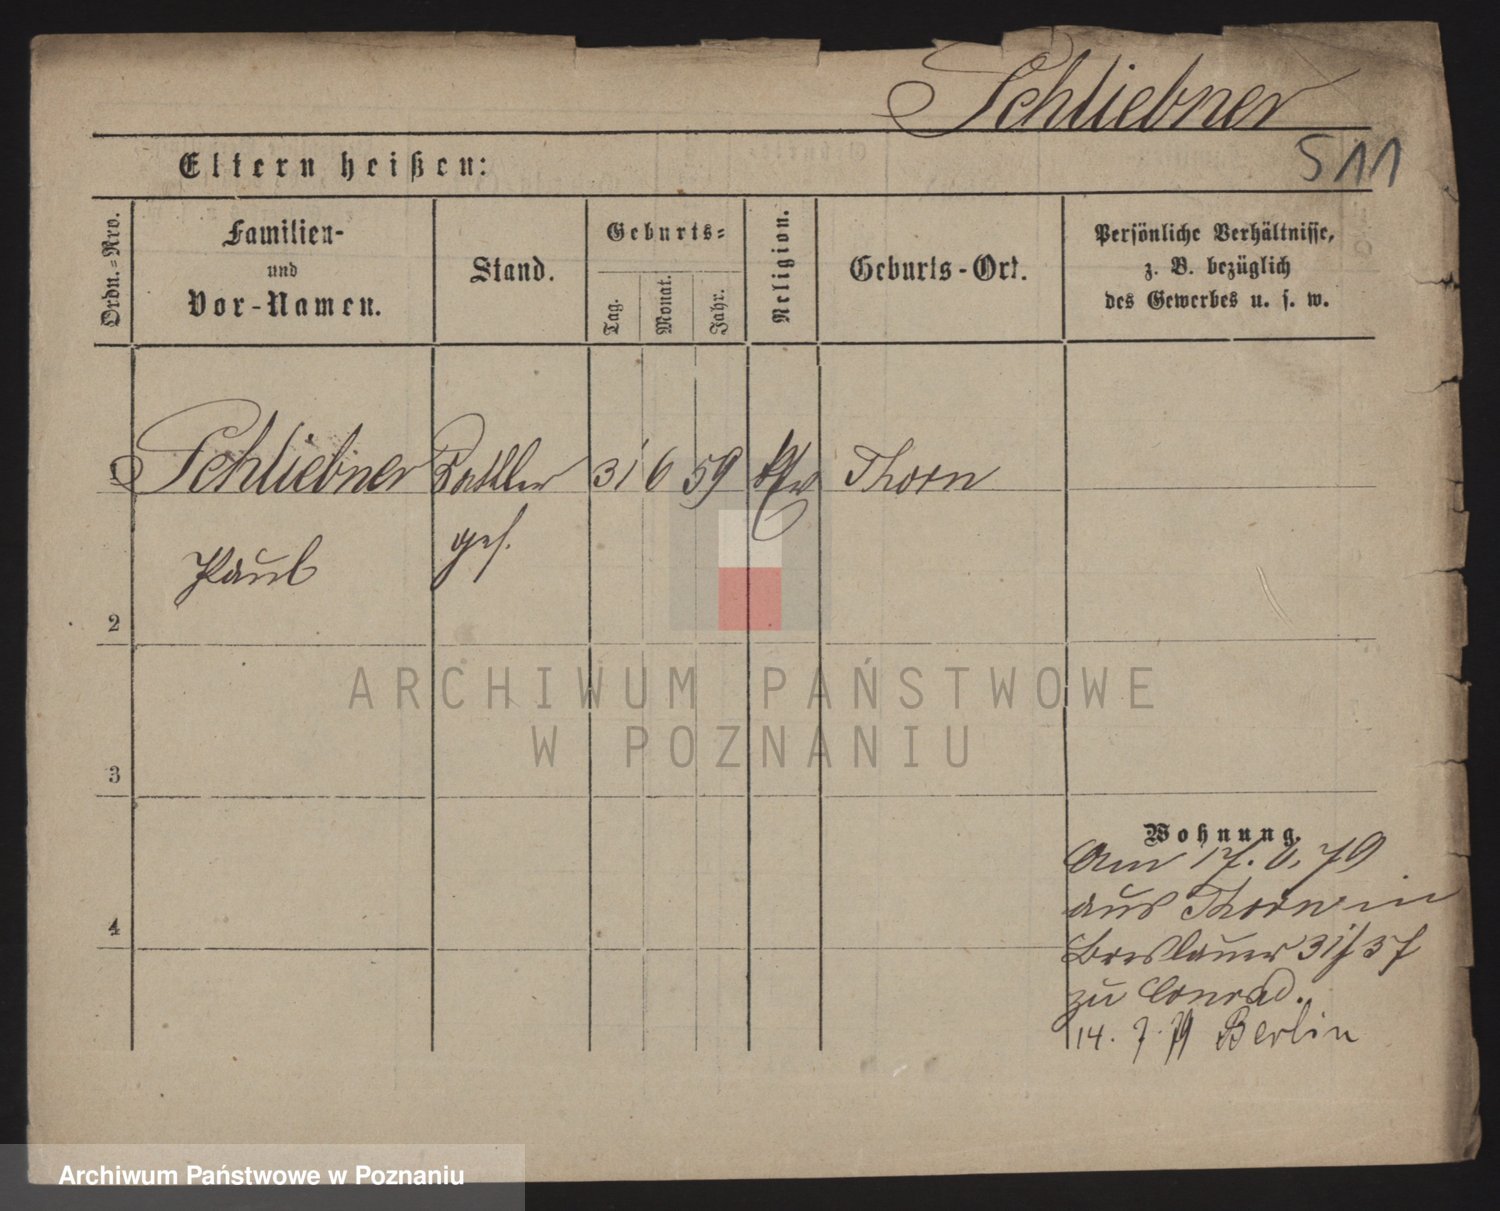 Schliebner
511
Eltern heißen:
Ordn.-Nro.
Familien-
und
Vor-Namen.
Stand.
Geburts-
Tag.
Monat.
Jahr.
Religion.
Geburts-Ort.
Persönliche Verhältnisse,
z. B. bezüglich
des Gewerbes u. s. w.
1 Schliebner Sattler 31 6 59 Thorn
Paul ges.
2
ARCHIWUM PAŃSTWOWE
W POZNANIU
3
Wohnung.
Am 17. 6. 79
aus Thorn in
4
Breslauer 31/37
zu Conrad.
14. 7. 79 Berlin
Archiwum Państwowe w Poznaniu